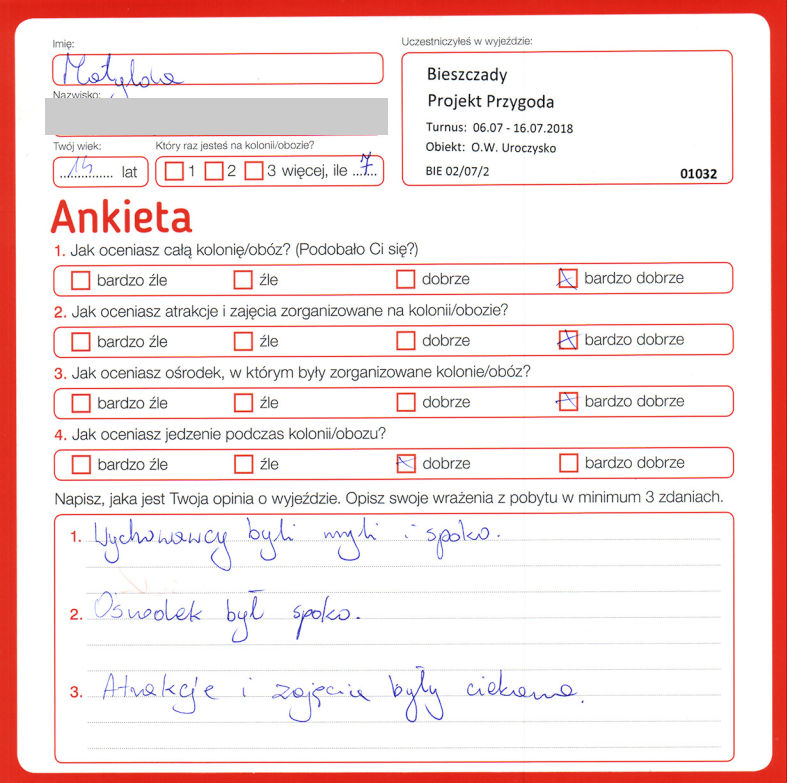 Imię:
Matylda
Nazwisko:
Twój wiek:
14 lat
Który raz jesteś na kolonii/obozie?
1 2 3 więcej, ile ...7...
Uczestniczyłeś w wyjeździe:
Bieszczady
Projekt Przygoda
Turnus: 06.07 - 16.07.2018
Obiekt: O.W. Uroczysko
BIE 02/07/2 01032
Ankieta
1. Jak oceniasz całą kolonię/obóz? (Podobało Ci się?)
bardzo źle źle dobrze bardzo dobrze
2. Jak oceniasz atrakcje i zajęcia zorganizowane na kolonii/obozie?
bardzo źle źle dobrze bardzo dobrze
3. Jak oceniasz ośrodek, w którym były zorganizowane kolonie/obóz?
bardzo źle źle dobrze bardzo dobrze
4. Jak oceniasz jedzenie podczas kolonii/obozu?
bardzo źle źle dobrze bardzo dobrze
Napisz, jaka jest Twoja opinia o wyjeździe. Opisz swoje wrażenia z pobytu w minimum 3 zdaniach.
1. Wychowawcy byli myli i spoko.
2. Ośrodek był spoko.
3. Atrakcje i zajęcia były ciekawe.